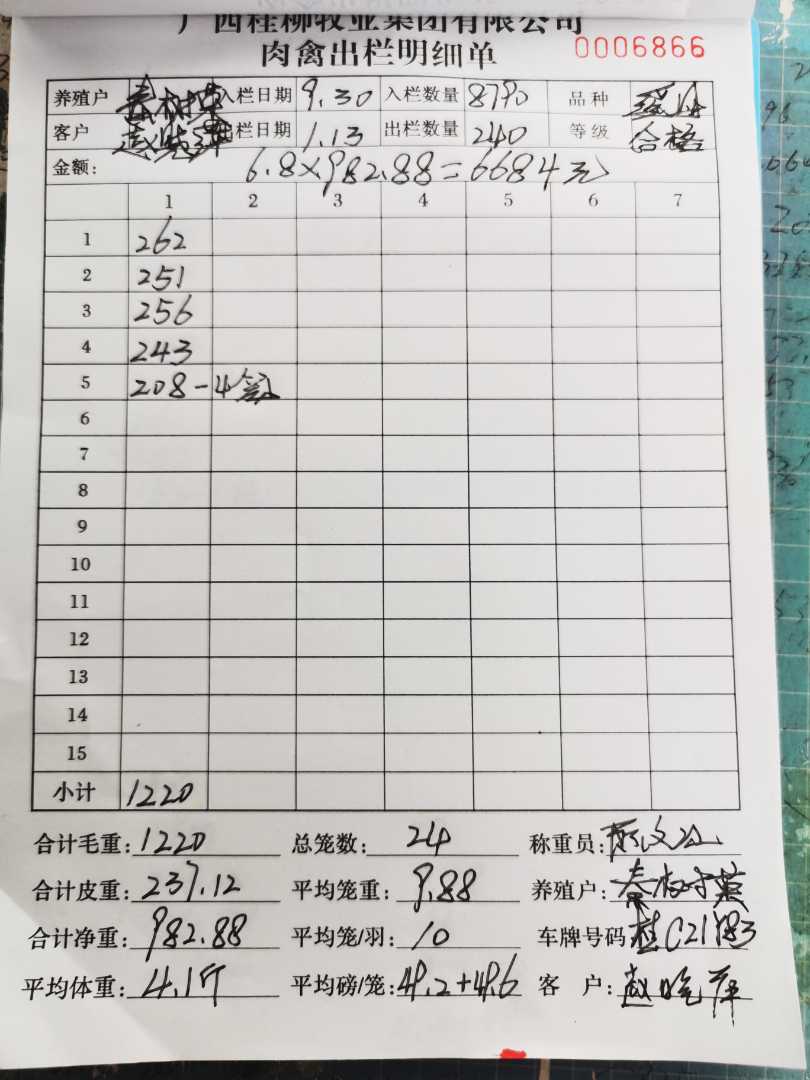 广西桂柳牧业集团有限公司
肉禽出栏明细单 0006866
养殖户 秦树英 入栏日期 9.30 入栏数量 8790 品种
客户 赵晓萍 出栏日期 1.13 出栏数量 240 等级 合格
金额: 6.8×982.88=6684元
1 2 3 4 5 6 7
1 262
2 251
3 256
4 243
5 208-4
6
7
8
9
10
11
12
13
14
15
小计 1220
合计毛重: 1220 总笼数: 24 称重员:
合计皮重: 237.12 平均笼重: 9.88 养殖户: 秦树英
合计净重: 982.88 平均笼/羽: 10 车牌号码 桂C21183
平均体重: 4.1斤 平均磅/笼: 49.2+49.6 客户: 赵晓萍